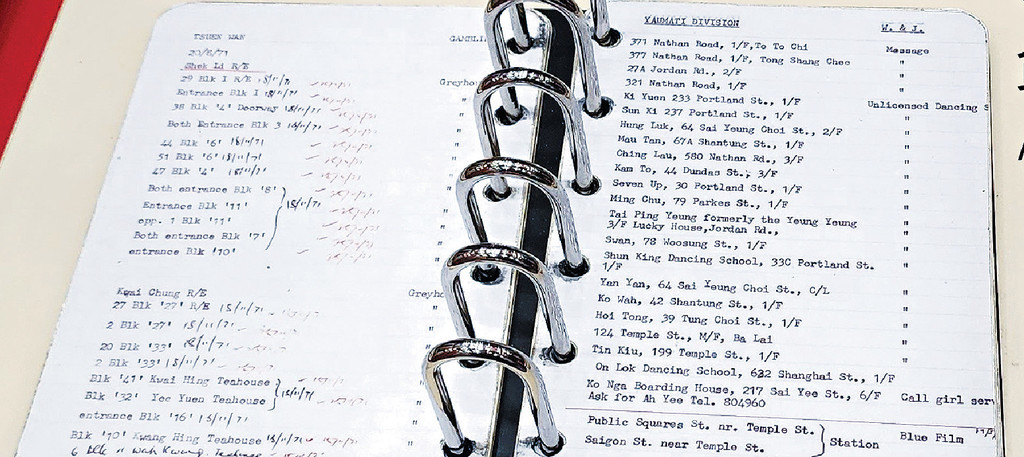 TSUEN WAN
GAMBLI
20/8/71
Shek Li R/E
29 Blk I R/E 18/11/71
Greyho
Entrance Blk I 18/11/71
"
38 Blk '4' Doorway 18/11/71
"
Both Entrance Blk 3 18/11/71
"
44 Blk '6' 18/11/71
"
51 Blk '6' 18/11/71
"
47 Blk '4' 18/11/71
"
Both entrance Blk '8'
Entrance Blk '11'
18/11/71
opp. 1 Blk '11'
Both entrance Blk '7'
entrance Blk '10'
Kwai Chung R/E
Greyho
27 Blk '27' R/E 18/11/71
2 Blk '27' 18/11/71
20 Blk '33' 18/11/71
2 Blk '33' 18/11/71
Blk '41' Kwai Hing Teahouse
Blk '32' Yee Yuen Teahouse
18/11/71
entrance Blk '16' 18/11/71
Blk '10' Kwang Hing Teahouse 18/11/71
6 Blk 11 Wah Kwong
YAUMATI DIVISION
W. & J.
371 Nathan Road, 1/F, To To Chi
Message
377 Nathan Road, 1/F, Tong Shang Chee
"
27A Jordan Rd., 2/F
"
321 Nathan Road, 1/F
"
Ki Yuen 233 Portland St., 1/F
Unlicensed Dancing S
Sun Ki 237 Portland St., 1/F
"
Hung Luk, 64 Sai Yeung Choi St., 2/F
"
Mau Tan, 67A Shantung St., 1/F
"
Ching Lau, 580 Nathan Rd., 3/F
"
Kam To, 44 Dundas St., 3/F
"
Seven Up, 30 Portland St., 1/F
"
Ming Chu, 79 Parkes St., 1/F
"
Tai Ping Yeung formerly the Yeung Yeung
3/F Lucky House, Jordan Rd.,
"
Swan, 78 Woosung St., 1/F
"
Shun King Dancing School, 33C Portland St.
1/F
"
Yan Yan, 64 Sai Yeung Choi St., C/L
"
Ko Wah, 42 Shantung St., 1/F
"
Hoi Tong, 39 Tung Choi St., 1/F
"
124 Temple St., M/F, Ba Lai
"
Tin Kiu, 199 Temple St., 1/F
"
On Lok Dancing School, 632 Shanghai St., 1/F
"
Ko Nga Boarding House, 217 Sai Yee St., 6/F
Call girl serv
Ask for Ah Yee Tel. 804960
Public Squares St. nr. Temple St.
Station
Blue Film
Saigon St. near Temple St.